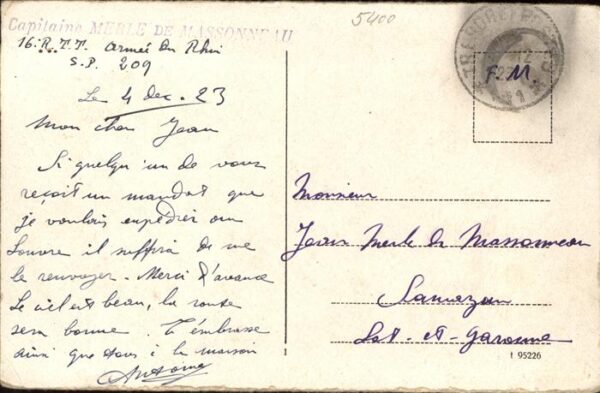 Capitaine MERLE DE MASSONNEAU
5400
16. R.T.T. Armée du Rhin
S.P. 209
Le 4 dec. 23
Mon cher Jean
Si quelqu'un de vous
reçoit un mandat que
je voulais expédier au
Louvre il suffira de me
le renvoyer. Merci d'avance
Le ciel est beau, la route
sera bonne. T'embrasse
ainsi que tous à la maison
Antoine
F.M.
Monsieur
Jean Merle de Massonneau
Samazan
Lot-et-Garonne
1 95226